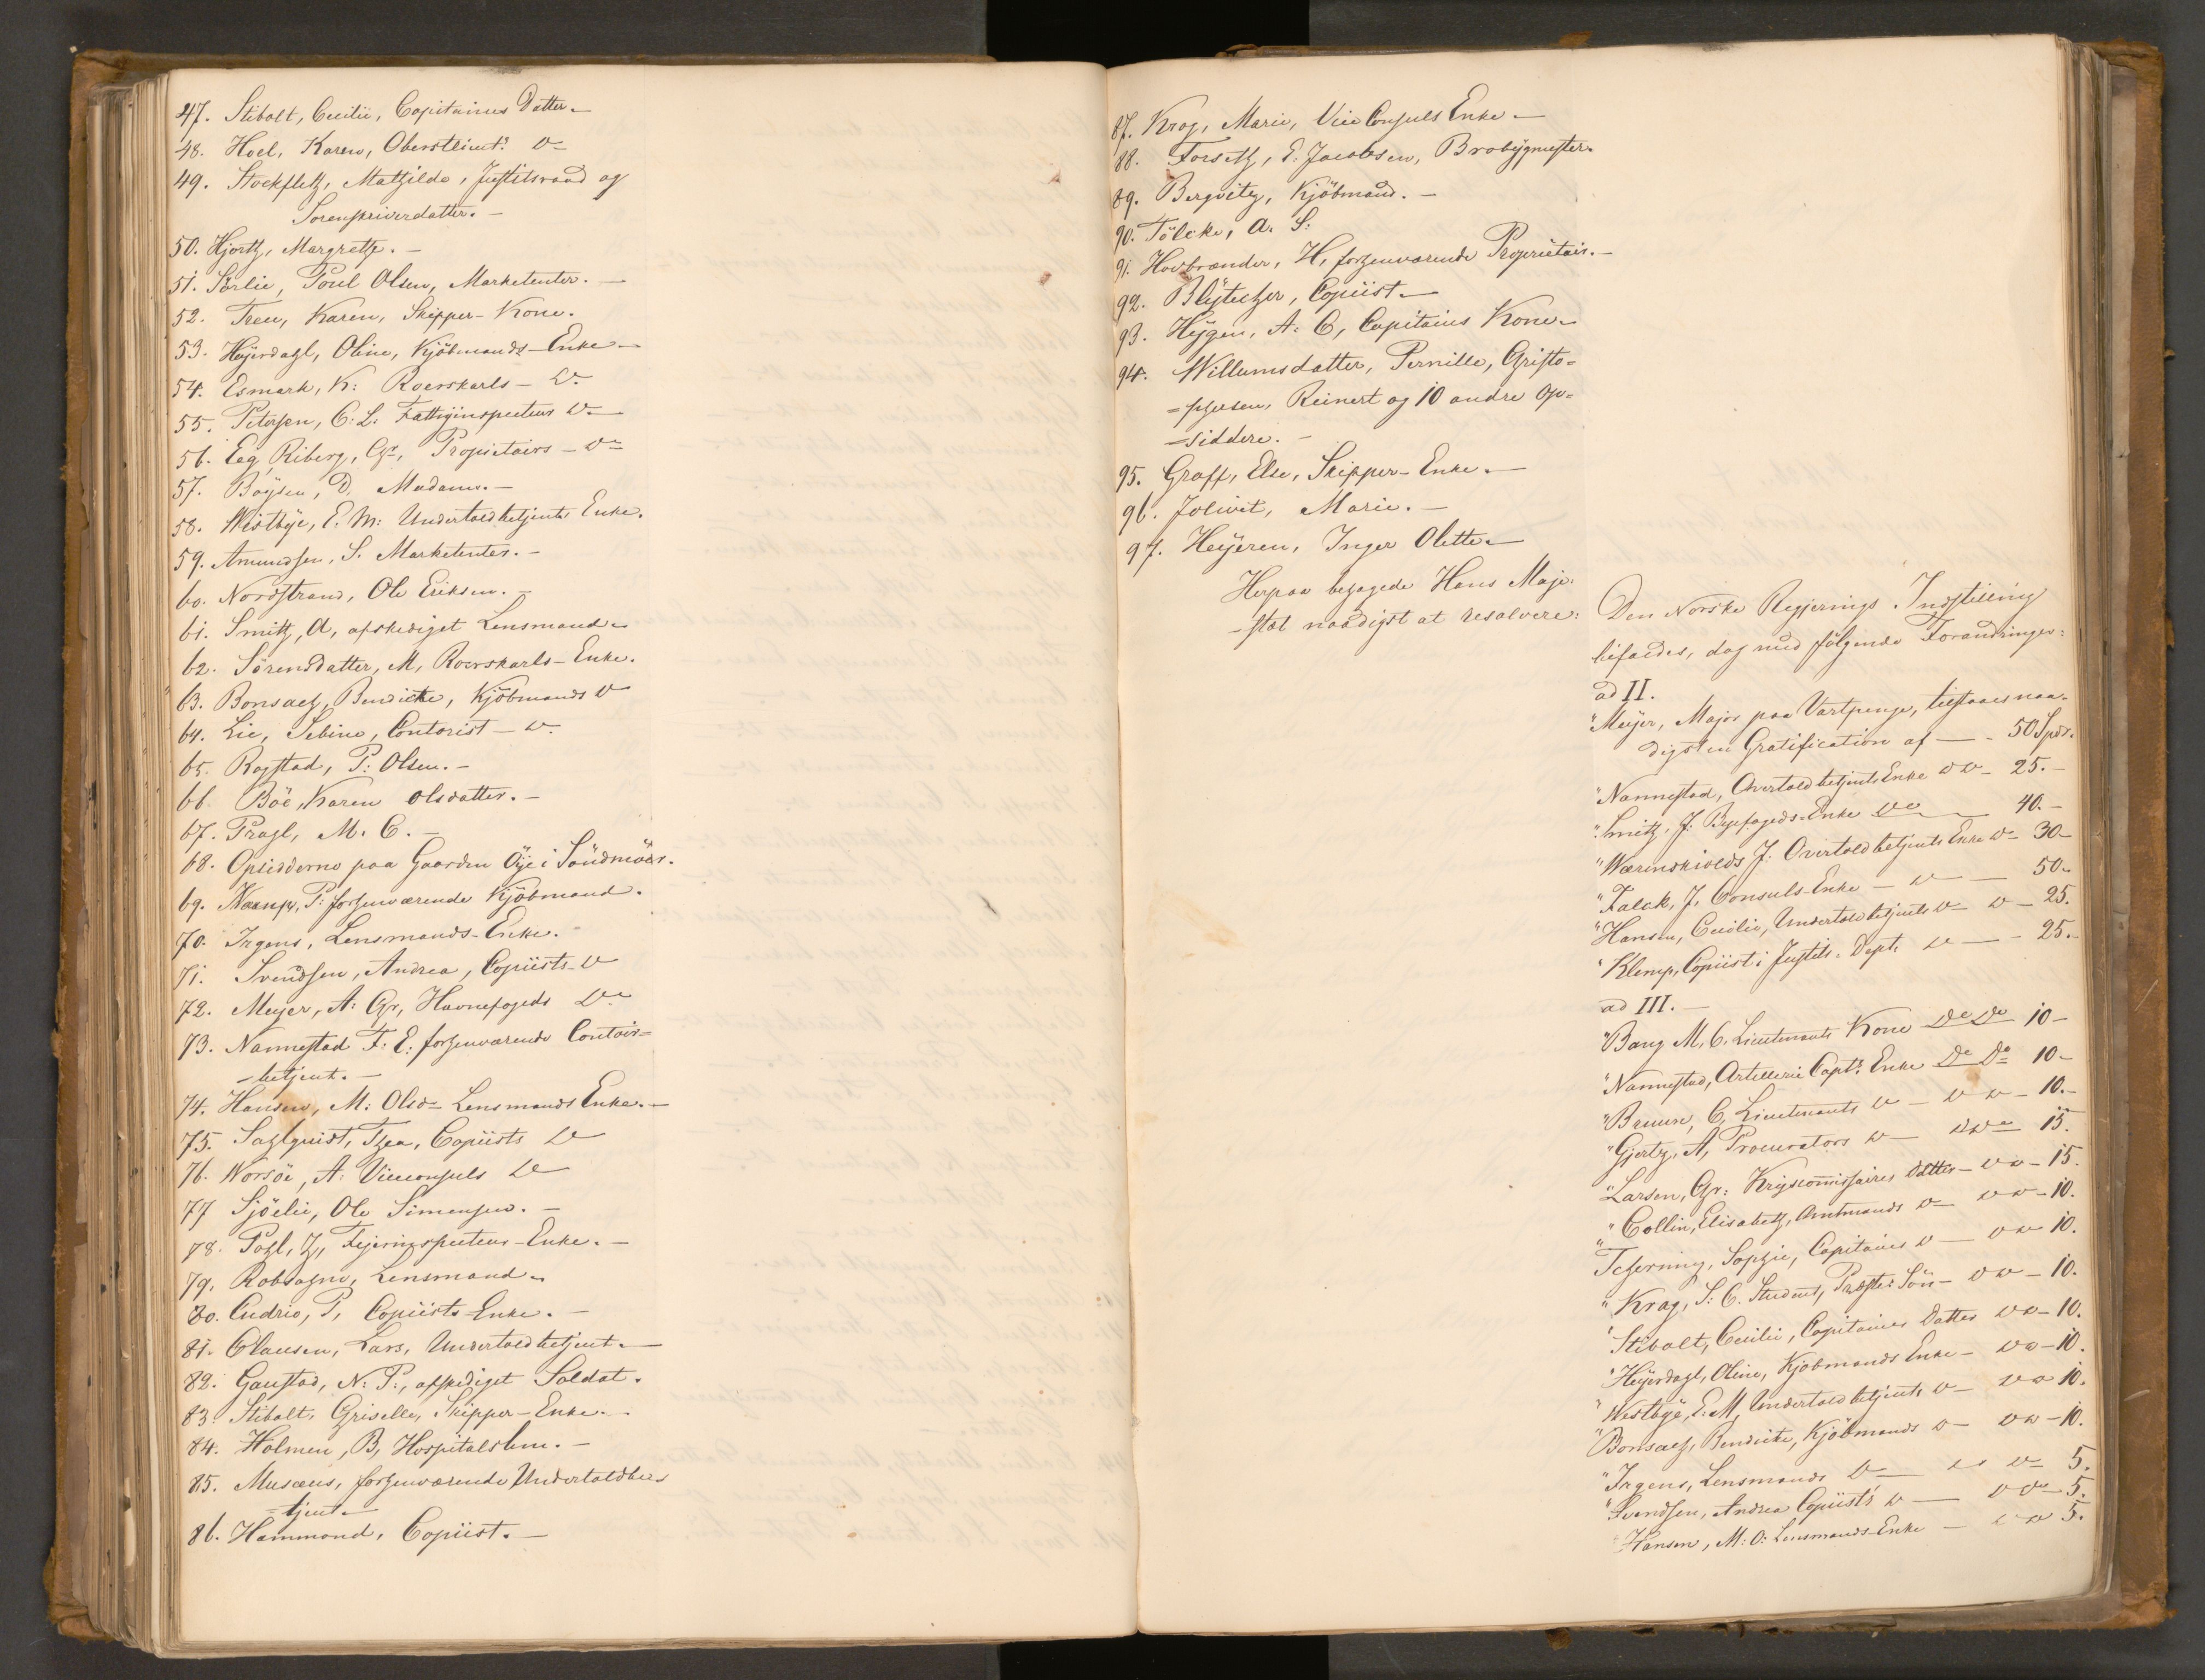 47. Stibolt, Cecilie, Capitaines Datter.
48. Hoel, Karen, Oberstlieut.s Do
49. Stockfleth, Mathilde, Justitsraad og
Sorenskriverdatter. -
50. Hjorth, Margrethe. -
51. Sörlie, Poul Olsen, Marketenter. -
52. Treu, Karen, Skipper-Kone.
53. Heyerdahl, Oline, Kjöbmands-Enke -
54. Esmark, K: Roerskarls - Do
55. Petersen, C: L: Fattiginspecteurs Do -
56. Eeg Riberg, Chr, Propietairs - Do
57. Boysen, D, Madame. -
58. Westbye, E. M: Undertoldbetjents Enke.
59. Amundsen, S. Marketenter. -
60. Nordstrand, Ole Eriksen. -
61. Smith, A, afskediget Lensmand.
62. Sörensdatter, M, Roerskarls-Enke.
63. Bonsach, Bendicte, Kjöbmands Do
64. Lie, Sebine, Contorist - Do
65. Rogstad, P: Olsen. -
66. Böe, Karen Olsdatter. -
67. Prahl, M. C. -
68. Opsidderne paa Gaarden Öye i Söndmöer.
69. Kaarup, P: forhenværende Kjöbmand.
70. Irgens, Lensmands-Enke. -
71. Svendsen, Andrea, Copiists - Do
72. Meyer, A: Chr, Havnefogeds Do
73. Nannestad F. E: forhenværende Contoir=
-betjent. -
74. Hansen, M: Olsdr Lensmands Enke. -
75. Sahlquist, Thea, Copiists Do
76. Worsöe, A: Viceconsuls Do
77 Sjöelie, Ole Simensen. -
78. Pohl, H, Fejerinspecteur-Enke. -
79. Robsahm, Lensmand.
80. Cudrio, P, Copiists-Enke. -
81. Clausen, Lars, Undertoldbetjent. -
82. Gaustad, N. P., afskediget Soldat.
83. Stibolt, Griselle, Skipper-Enke. -
84. Holmen, B, Hospitalslem. -
85. Musæus, forhenværende Undertoldbe=
=tjent. -
86. Hammond, Copiist. -
87. Krog, Marie, Vice Consuls Enke -
88. Forseth, E. Jacobsen, Brobygmester.
89. Bergvitz, Kjöbmand. -
90. Tölcke, A. S:
91. Hovbrænder, H, forhenværende Proprietair. -
92. Blytecher, Copiist -
93. Heygen, A: C, Capitains Kone.
94. Willumsdatter, Pernille, Christo=
=phersen, Reinert og 10 andre Op=
-siddere. -
95. Graff, Else, Skipper-Enke. -
96. Jolivit, Marie. -
97. Heyeren, Inger Olette -
Herpaa behagede Hans Maje=
-stæt naadigst at resolvere:
Den Norske Regjerings Indstilling
bifaldes, dog med fölgende Forandringer:
ad II.
"Meyer, Major paa Vartpenge, tilstaaes naa=
digst en Gratification af - - 50 Spdr.
"Nannestad, Overtoldbetjents Enke Do Do - 25. -
"Smith, J: Byefogeds-Enke Do 40. -
"Wærenskiolds J: Overtoldbetjents Enke Do - 30 -
"Falck, J, Consuls-Enke - Do - 50 -
"Hansen, Cecilie, Undertoldbetjents Do - Do - 25.
"Klemp, Copiist i Justits-Dept. Do - - 25. -
ad III. -
"Bang M. C. Lieutenants Kone Do Do 10 -
"Nannestad, Artillerie Capt.s Enke Do Do 10 -
"Bruun, C, Lieutenants Do - Do Do - 10. -
"Gjertz, A, Procurators Do - Do Do 15.
"Larsen, Chr: Krigscommissaires Datter - Do Do - 15.
"Collin, Elisabeth, Amtmands Do - Do Do - 10.
"Tcherning, Sophie, Capitaines Do - Do Do 10.
"Krag, S: C. Student, Præste-Sön - Do Do - 10.
"Stibolt, Cecilie, Capitaines Datter Do Do - 10.
"Heyerdahl, Oline, Kjöbmands Enke - Do Do - 10.
"Westbye, E. M, Undertoldbetjents Do - Do Do 10.
"Bonsach, Bendicte, Kjöbmands Do - Do Do - 10.
"Irgens, Lensmands Do - Do Do 5.
"Svendsen, Andrea Copiists Do - Do Do - 5.
"Hansen, M: O: Lensmands-Enke - Do Do 5.